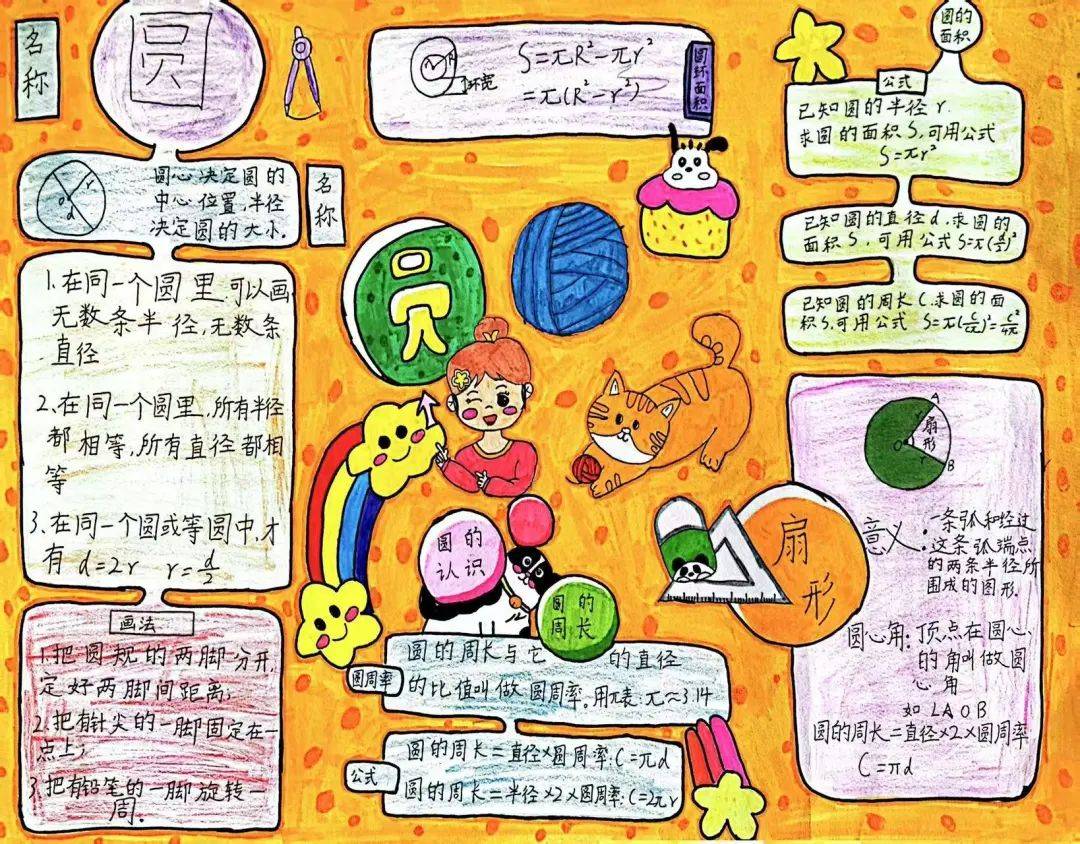 名称
圆
r
o
d
圆心决定圆的
中心位置,半径
决定圆的大小.
名称
1.在同一个圆里可以画
无数条半径,无数条
直径
2.在同一个圆里,所有半径
都相等,所有直径都相
等
3.在同一个圆或等圆中,才
有 d=2r r=d/2
画法
1.把圆规的两脚分开,
定好两脚间距离;
2.把有针尖的一脚固定在一
点上;
3.把有铅笔的一脚旋转一
周.
环宽
S=πR²-πr²
=π(R²-r²)
圆环面积
圆
圆的
认识
圆的
周长
圆周率
圆的周长与它 的直径
的比值叫做圆周率.用π表:π≈3.14
公式
圆的周长=直径×圆周率:C=πd
圆的周长=半径×2×圆周率:C=2πr
圆的
面积
公式
已知圆的半径r.
求圆的面积S,可用公式
S=πr²
已知圆的直径d.求圆的
面积S,可用公式S=π(d/2)²
已知圆的周长C.求圆的面
积S,可用公式 S=π(C/2π)²=C²/4π
扇形
A
r
扇形
O
B
意义:一条弧和经过
这条弧端点
的两条半径所
围成的图形.
圆心角:顶点在圆心
的角叫做圆
心角
如∠AOB
圆的周长=直径×2×圆周率
C=πd